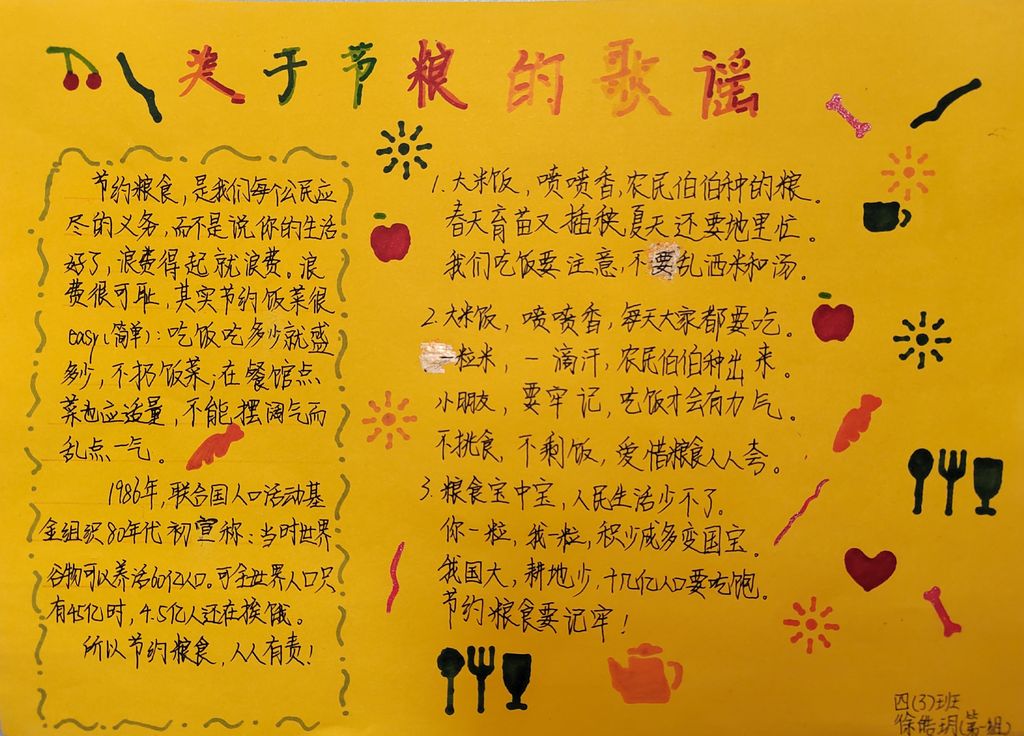 关于节粮的歌谣
节约粮食，是我们每个公民应
尽的义务，而不是说你的生活
好了，浪费得起就浪费。浪
费很可耻，其实节约饭菜很
easy(简单)：吃饭吃多少就盛
多少，不扔饭菜；在餐馆点
菜也应适量，不能摆阔气而
乱点一气。
1986年，联合国人口活动基
金组织80年代初宣称：当时世界
谷物可以养活60亿人口。可全世界人口只
有45亿时，4.5亿人还在挨饿。
所以节约粮食，人人有责！
1.大米饭，喷喷香，农民伯伯种的粮。
春天育苗又插秧，夏天还要地里忙。
我们吃饭要注意，不要乱洒米和汤。
2.大米饭，喷喷香，每天大家都要吃。
一粒米，一滴汗，农民伯伯种出来。
小朋友，要牢记，吃饭才会有力气。
不挑食，不剩饭，爱惜粮食人人夸。
3.粮食宝中宝，人民生活少不了。
你一粒，我一粒，积少成多变国宝。
我国大，耕地少，十几亿人口要吃饱。
节约粮食要记牢！
四(3)班
徐皓玥(第一组)